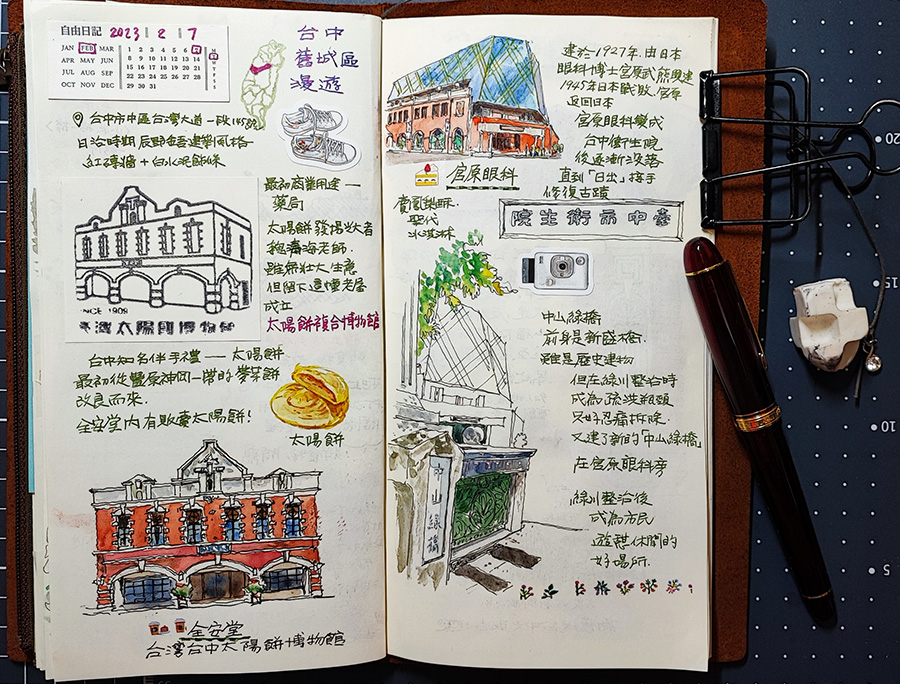 自由日記 2023 2 7
JAN FEB MAR
APR MAY JUN
JUL AUG SEP
OCT NOV DEC
1 2 3 4 5 6 7
8 9 10 11 12 13 14
15 16 17 18 19 20 21
22 23 24 25 26 27 28
29 30 31
台中
舊城區
漫遊
台中市中區台灣大道一段145號
日治時期 辰野金吾建築風格
紅磚牆+白水泥飾條
最初商業用途一
藥局
太陽餅發揚光大者
魏清海老師
雖無壯大生意
但留下這棟老屋
成立
太陽餅複合博物館
SINCE 1909
臺灣太陽餅博物館
台中知名伴手禮——太陽餅
最初從豐原神岡一帶的麥芽餅
改良而來.
全安堂內有販賣太陽餅!
太陽餅
全安堂
台灣台中太陽餅博物館
建於1927年.由日本
眼科博士宮原武熊興建
1945年日本戰敗.宮原
返回日本
宮原眼科變成
台中衛生院
後逐漸沒落
直到「日出」接手
修復古蹟
宮原眼科
賣鳳梨酥.
聖代
冰淇淋
院生衛市中臺
中山綠橋
前身是新盛橋
雖是歷史建物
但在綠川整治時
成為防洪瓶頸
只好忍痛拆除.
又建了新的「中山綠橋」
在宮原眼科旁
綠川整治後
成為市民
遊憩休閒的
好場所.
中山綠橋
15
10
5